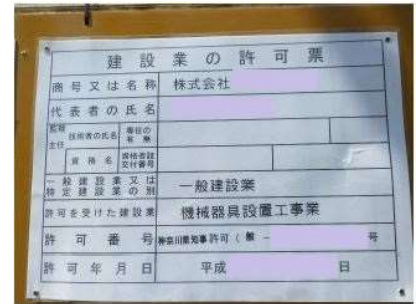 建設業の許可票
商号又は名称 株式会社
代表者の氏名
監理 主任 技術者の氏名 専任の有無
資格名 資格者証交付番号
一般建設業又は特定建設業の別 一般建設業
許可を受けた建設業 機械器具設置工事業
許可番号 神奈川県知事 許可(般 - 号
許可年月日 平成 日